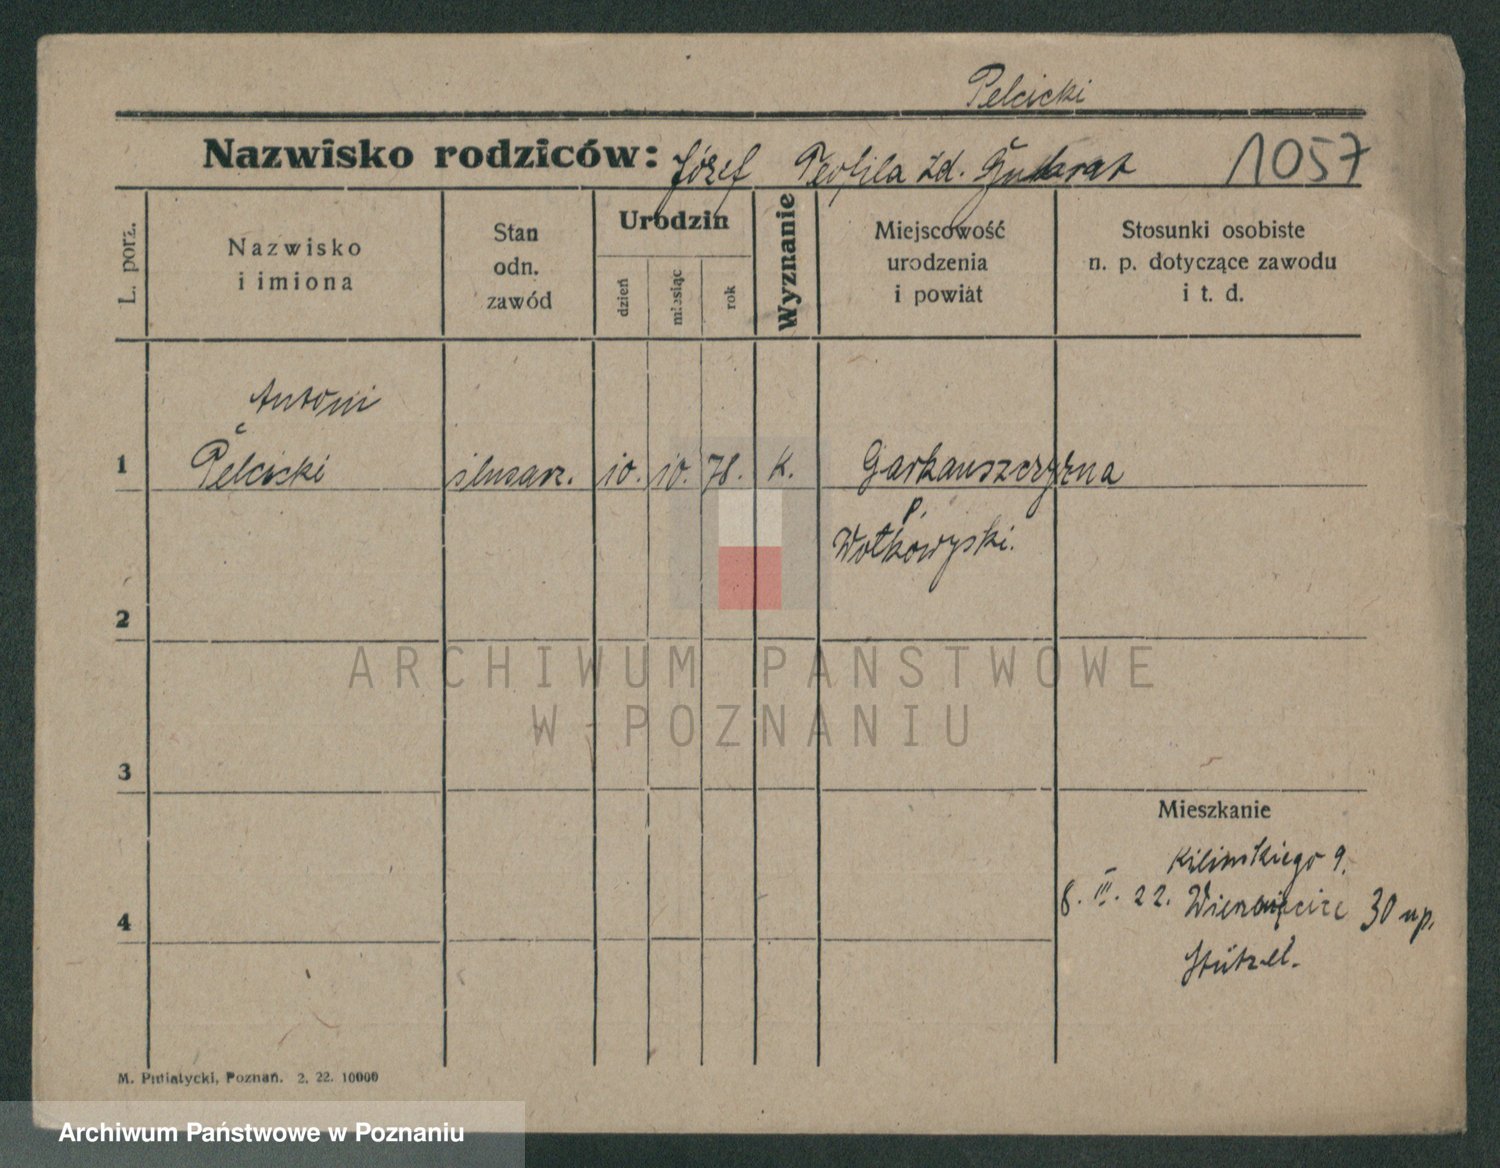 Pelcicki
Nazwisko rodziców: Józef Teofila zd. 1057
L. porz.
Nazwisko
i imiona
Stan
odn.
zawód
Urodzin
dzień
miesiąc
rok
Wyznanie
Miejscowość
urodzenia
i powiat
Stosunki osobiste
n. p. dotyczące zawodu
i t. d.
Antoni
1 Pelcicki ślusarz. 10. 10. 78. K.
p.
Wołkowyski.
2
ARCHIWUM PAŃSTWOWE
W POZNANIU
3
Mieszkanie
Kilinskiego 9.
8. III. 22. 30 up.
4
M. Putiatycki, Poznań. 2. 22. 10000
Archiwum Państwowe w Poznaniu